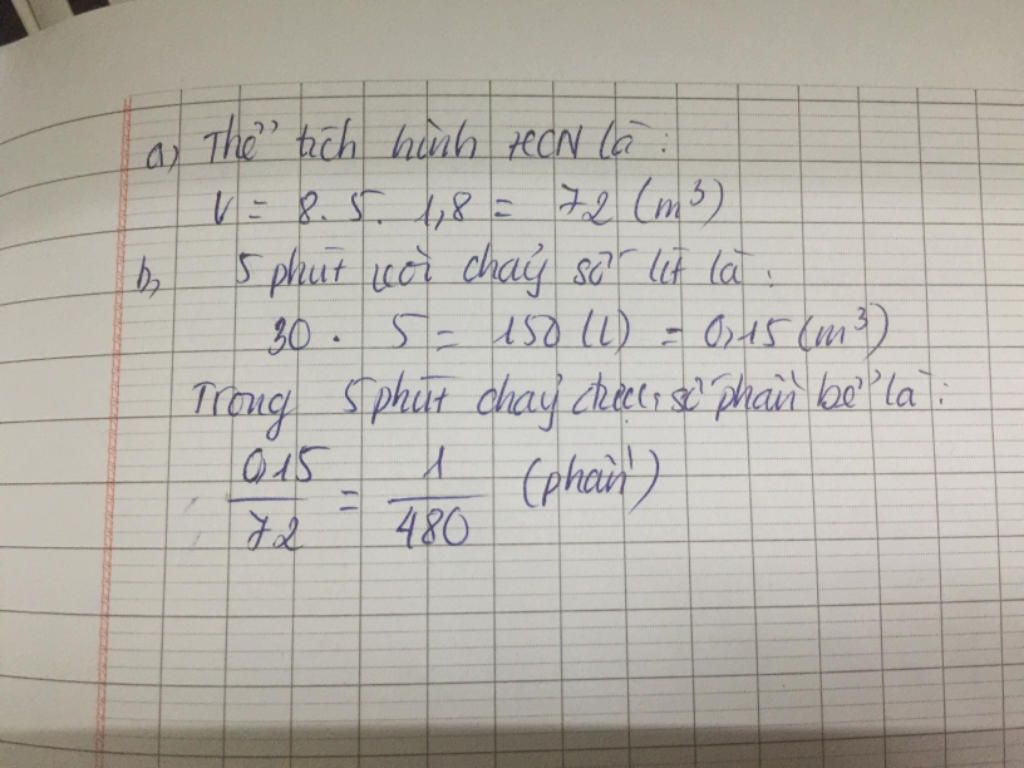 a) Thể tích hình HCN là:
V = 8.5. 1,8 = 72 (m³)
b, 5 phút vòi chảy số lít là:
30 . 5 = 150 (l) = 0,15 (m³)
Trong 5 phút chảy được số phần bể là:
0,15/72 = 1/480 (phần)